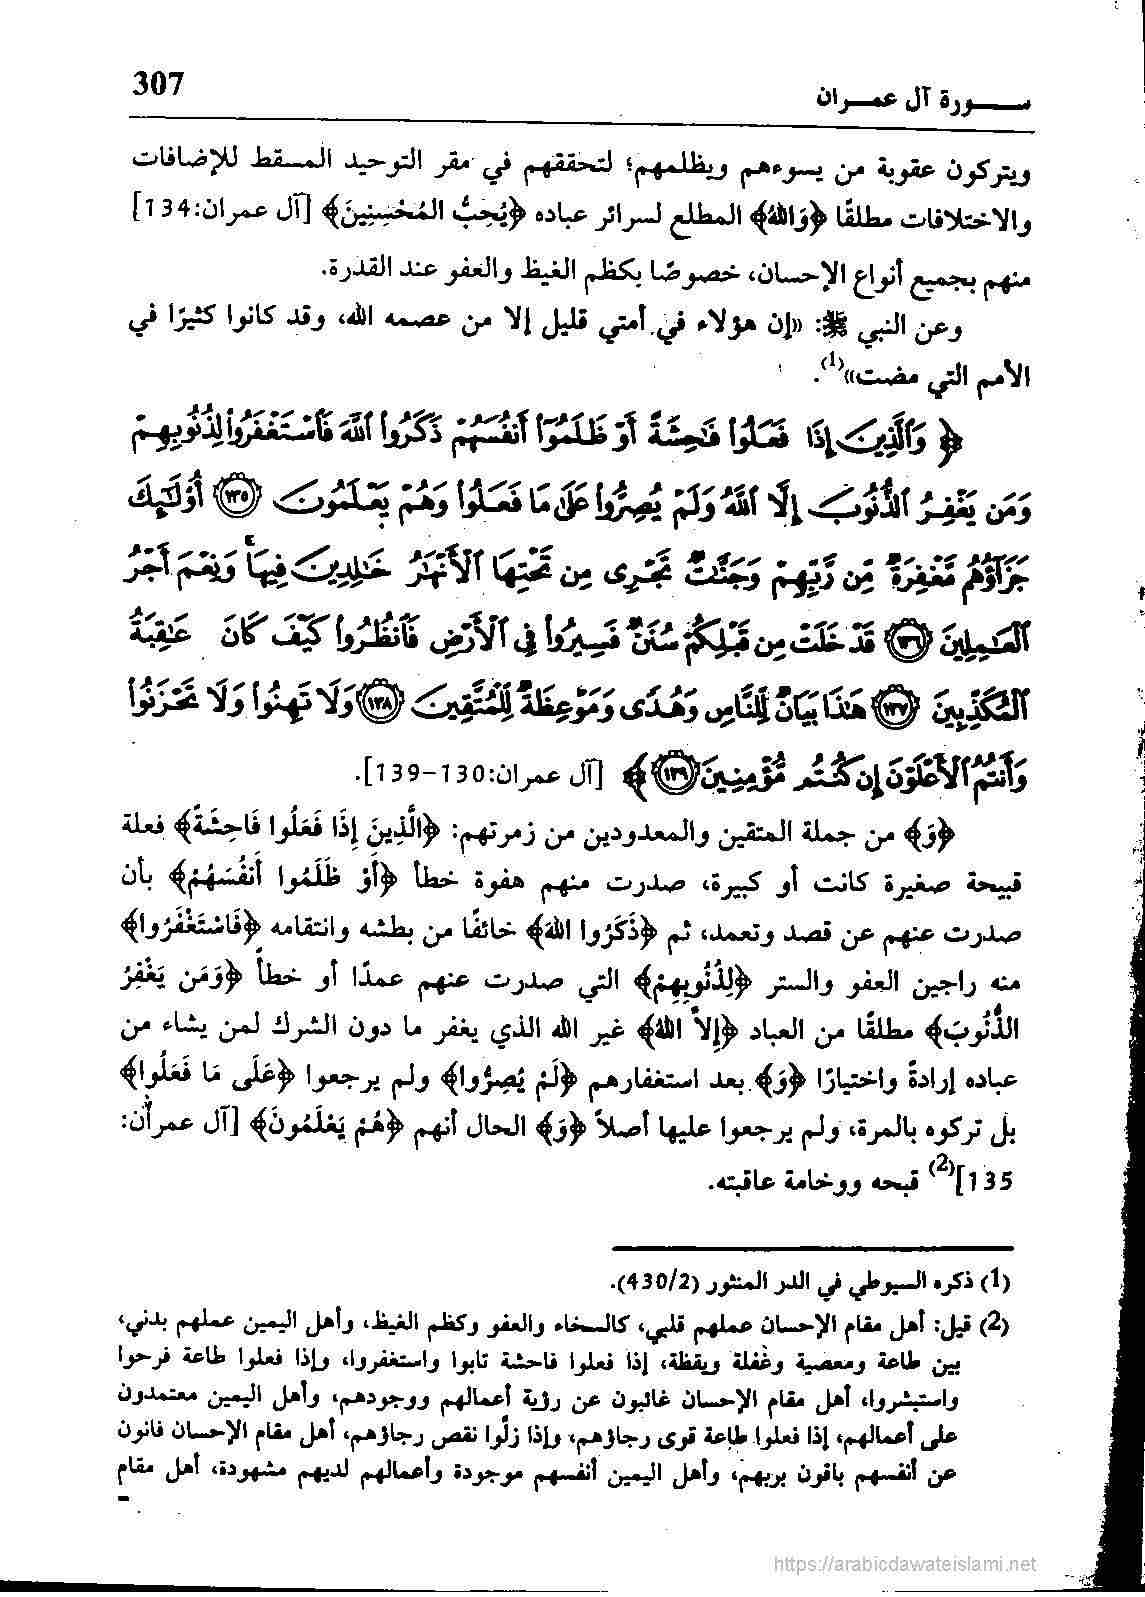 307
سـورة آل عمـران
ويتركون عقوبة من يسوءهم ويظلمهم؛ لتحققهم في مقر التوحيد المسقط للإضافات
والاختلافات مطلقًا ﴿وَاللهُ﴾ المطلع لسرائر عباده ﴿يُحِبُّ المُحْسِنِينَ﴾ [آل عمران:134]
منهم بجميع أنواع الإحسان، خصوصًا بكظم الغيظ والعفو عند القدرة.
وعن النبي ﷺ: «إن هؤلاء في أمتي قليل إلا من عصمه الله، وقد كانوا كثيرًا في
الأمم التي مضت»(1).
﴿ وَٱلَّذِينَ إِذَا فَعَلُوا۟ فَٰحِشَةً أَوْ ظَلَمُوٓا۟ أَنفُسَهُمْ ذَكَرُوا۟ ٱللَّهَ فَٱسْتَغْفَرُوا۟ لِذُنُوبِهِمْ
وَمَن يَغْفِرُ ٱلذُّنُوبَ إِلَّا ٱللَّهُ وَلَمْ يُصِرُّوا۟ عَلَىٰ مَا فَعَلُوا۟ وَهُمْ يَعْلَمُونَ ١٣٥ أُو۟لَٰٓئِكَ
جَزَآؤُهُم مَّغْفِرَةٌ مِّن رَّبِّهِمْ وَجَنَّٰتٌ تَجْرِى مِن تَحْتِهَا ٱلْأَنْهَٰرُ خَٰلِدِينَ فِيهَا ۚ وَنِعْمَ أَجْرُ
ٱلْعَٰمِلِينَ ١٣٦ قَدْ خَلَتْ مِن قَبْلِكُمْ سُنَنٌ فَسِيرُوا۟ فِى ٱلْأَرْضِ فَٱنظُرُوا۟ كَيْفَ كَانَ عَٰقِبَةُ
ٱلْمُكَذِّبِينَ ١٣٧ هَٰذَا بَيَانٌ لِّلنَّاسِ وَهُدًى وَمَوْعِظَةٌ لِّلْمُتَّقِينَ ١٣٨ وَلَا تَهِنُوا۟ وَلَا تَحْزَنُوا۟
وَأَنتُمُ ٱلْأَعْلَوْنَ إِن كُنتُم مُّؤْمِنِينَ ١٣٩ ﴾ [آل عمران:130-139].
﴿وَ﴾ من جملة المتقين والمعدودين من زمرتهم: ﴿الَّذِينَ إِذَا فَعَلُوا فَاحِشَةً﴾ فعلة
قبيحة صغيرة كانت أو كبيرة، صدرت منهم هفوة خطأ ﴿أَوْ ظَلَمُوا أَنفُسَهُمْ﴾ بأن
صدرت عنهم عن قصد وتعمد، ثم ﴿ذَكَرُوا اللهَ﴾ خائفًا من بطشه وانتقامه ﴿فَاسْتَغْفَرُوا﴾
منه راجين العفو والستر ﴿لِذُنُوبِهِمْ﴾ التي صدرت عنهم عمدًا أو خطأً ﴿وَمَن يَغْفِرُ
الذُّنُوبَ﴾ مطلقًا من العباد ﴿إِلاَّ اللهُ﴾ غير الله الذي يغفر ما دون الشرك لمن يشاء من
عباده إرادةً واختيارًا ﴿وَ﴾ بعد استغفارهم ﴿لَمْ يُصِرُّوا﴾ ولم يرجعوا ﴿عَلَى مَا فَعَلُوا﴾
بل تركوه بالمرة، ولم يرجعوا عليها أصلاً ﴿وَ﴾ الحال أنهم ﴿هُمْ يَعْلَمُونَ﴾ [آل عمران:
135](2) قبحه ووخامة عاقبته.
(1) ذكره السيوطي في الدر المنثور (430/2).
(2) قيل: أهل مقام الإحسان عملهم قلبي، كالسخاء والعفو وكظم الغيظ، وأهل اليمين عملهم بدني،
بين طاعة ومعصية وغفلة ويقظة، إذا فعلوا فاحشة تابوا واستغفروا، وإذا فعلوا طاعة فرحوا
واستبشروا، أهل مقام الإحسان غائبون عن رؤية أعمالهم ووجودهم، وأهل اليمين معتمدون
على أعمالهم، إذا فعلوا طاعة قوى رجاؤهم، وإذا زلُّوا نقص رجاؤهم، أهل مقام الإحسان فانون
عن أنفسهم باقون بربهم، وأهل اليمين أنفسهم موجودة وأعمالهم لديهم مشهودة، أهل مقام
=
https://arabicdawateislami.net